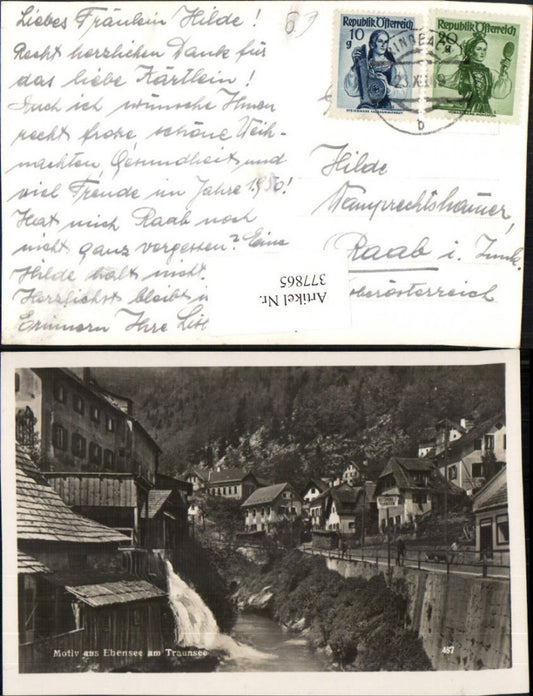 Liebes Fräulein Hilde!
Recht herzlichen Dank für
das liebe Kartlein!
Auch ich wünsche Ihnen
recht frohe, schöne Weih-
nachten, Gesundheit und
viel Freude im Jahre 1950!
Hat mich Raab noch
nicht ganz vergessen? Eine
Hilde halt nicht.
Herzlichst bleibt
Erinnern Ihre
Republik Österreich
10
g
Republik Österreich
20
g
b
Hilde
Namprechtshamer,
Raab i. Innk.
Oberösterreich
Artikel Nr.
377865
Motiv aus Ebensee am Traunsee
487